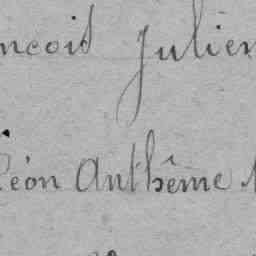 ncois Julien
Léon Anthême